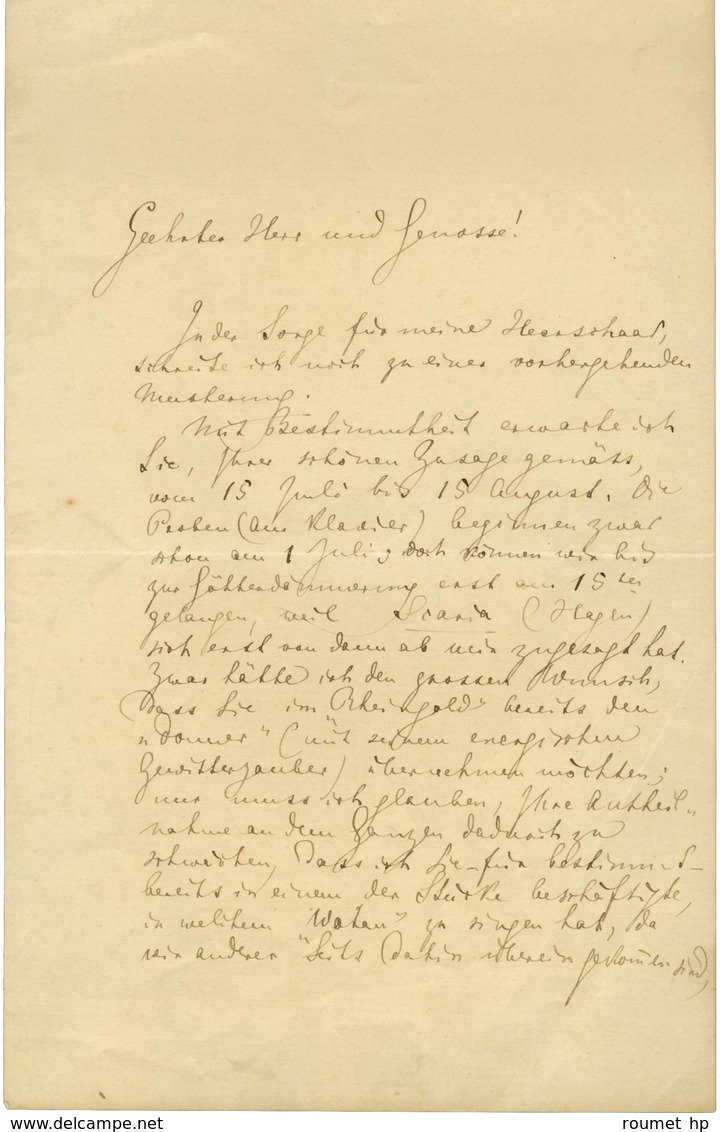 Geehrter Herr und Genosse!
In der Sorge für meine Heerschaar,
schreite ich noch zu einer vorhergehenden
Musterung.
Mit Bestimmtheit erwarte ich
Sie, Ihrer schönen Zusage gemäss,
vom 15 Juli bis 15 August. Die
Proben (am Klavier) beginnen zwar
schon am 1 Juli; doch können wir bis
zur Götterdämmerung erst am 15ten
gelangen, weil Scaria (Hagen)
sich erst von dann ab mir zugesagt hat.
Zwar hätte ich den grossen Wunsch,
dass Sie im "Rheingold" bereits den
"Donner" (mit seinem energischen
Gewitterzauber) übernehmen möchten;
nur muss ich glauben, Ihre Antheil-
nahme an dem Ganzen dadurch zu
schwächen, dass ich Sie – für bestimmt –
bereits in einem der Stücke beschäftigte,
in welchem "Wotan" zu singen hat, da
wir anderer Seits dahin übereingekommen sind,
roumet hp